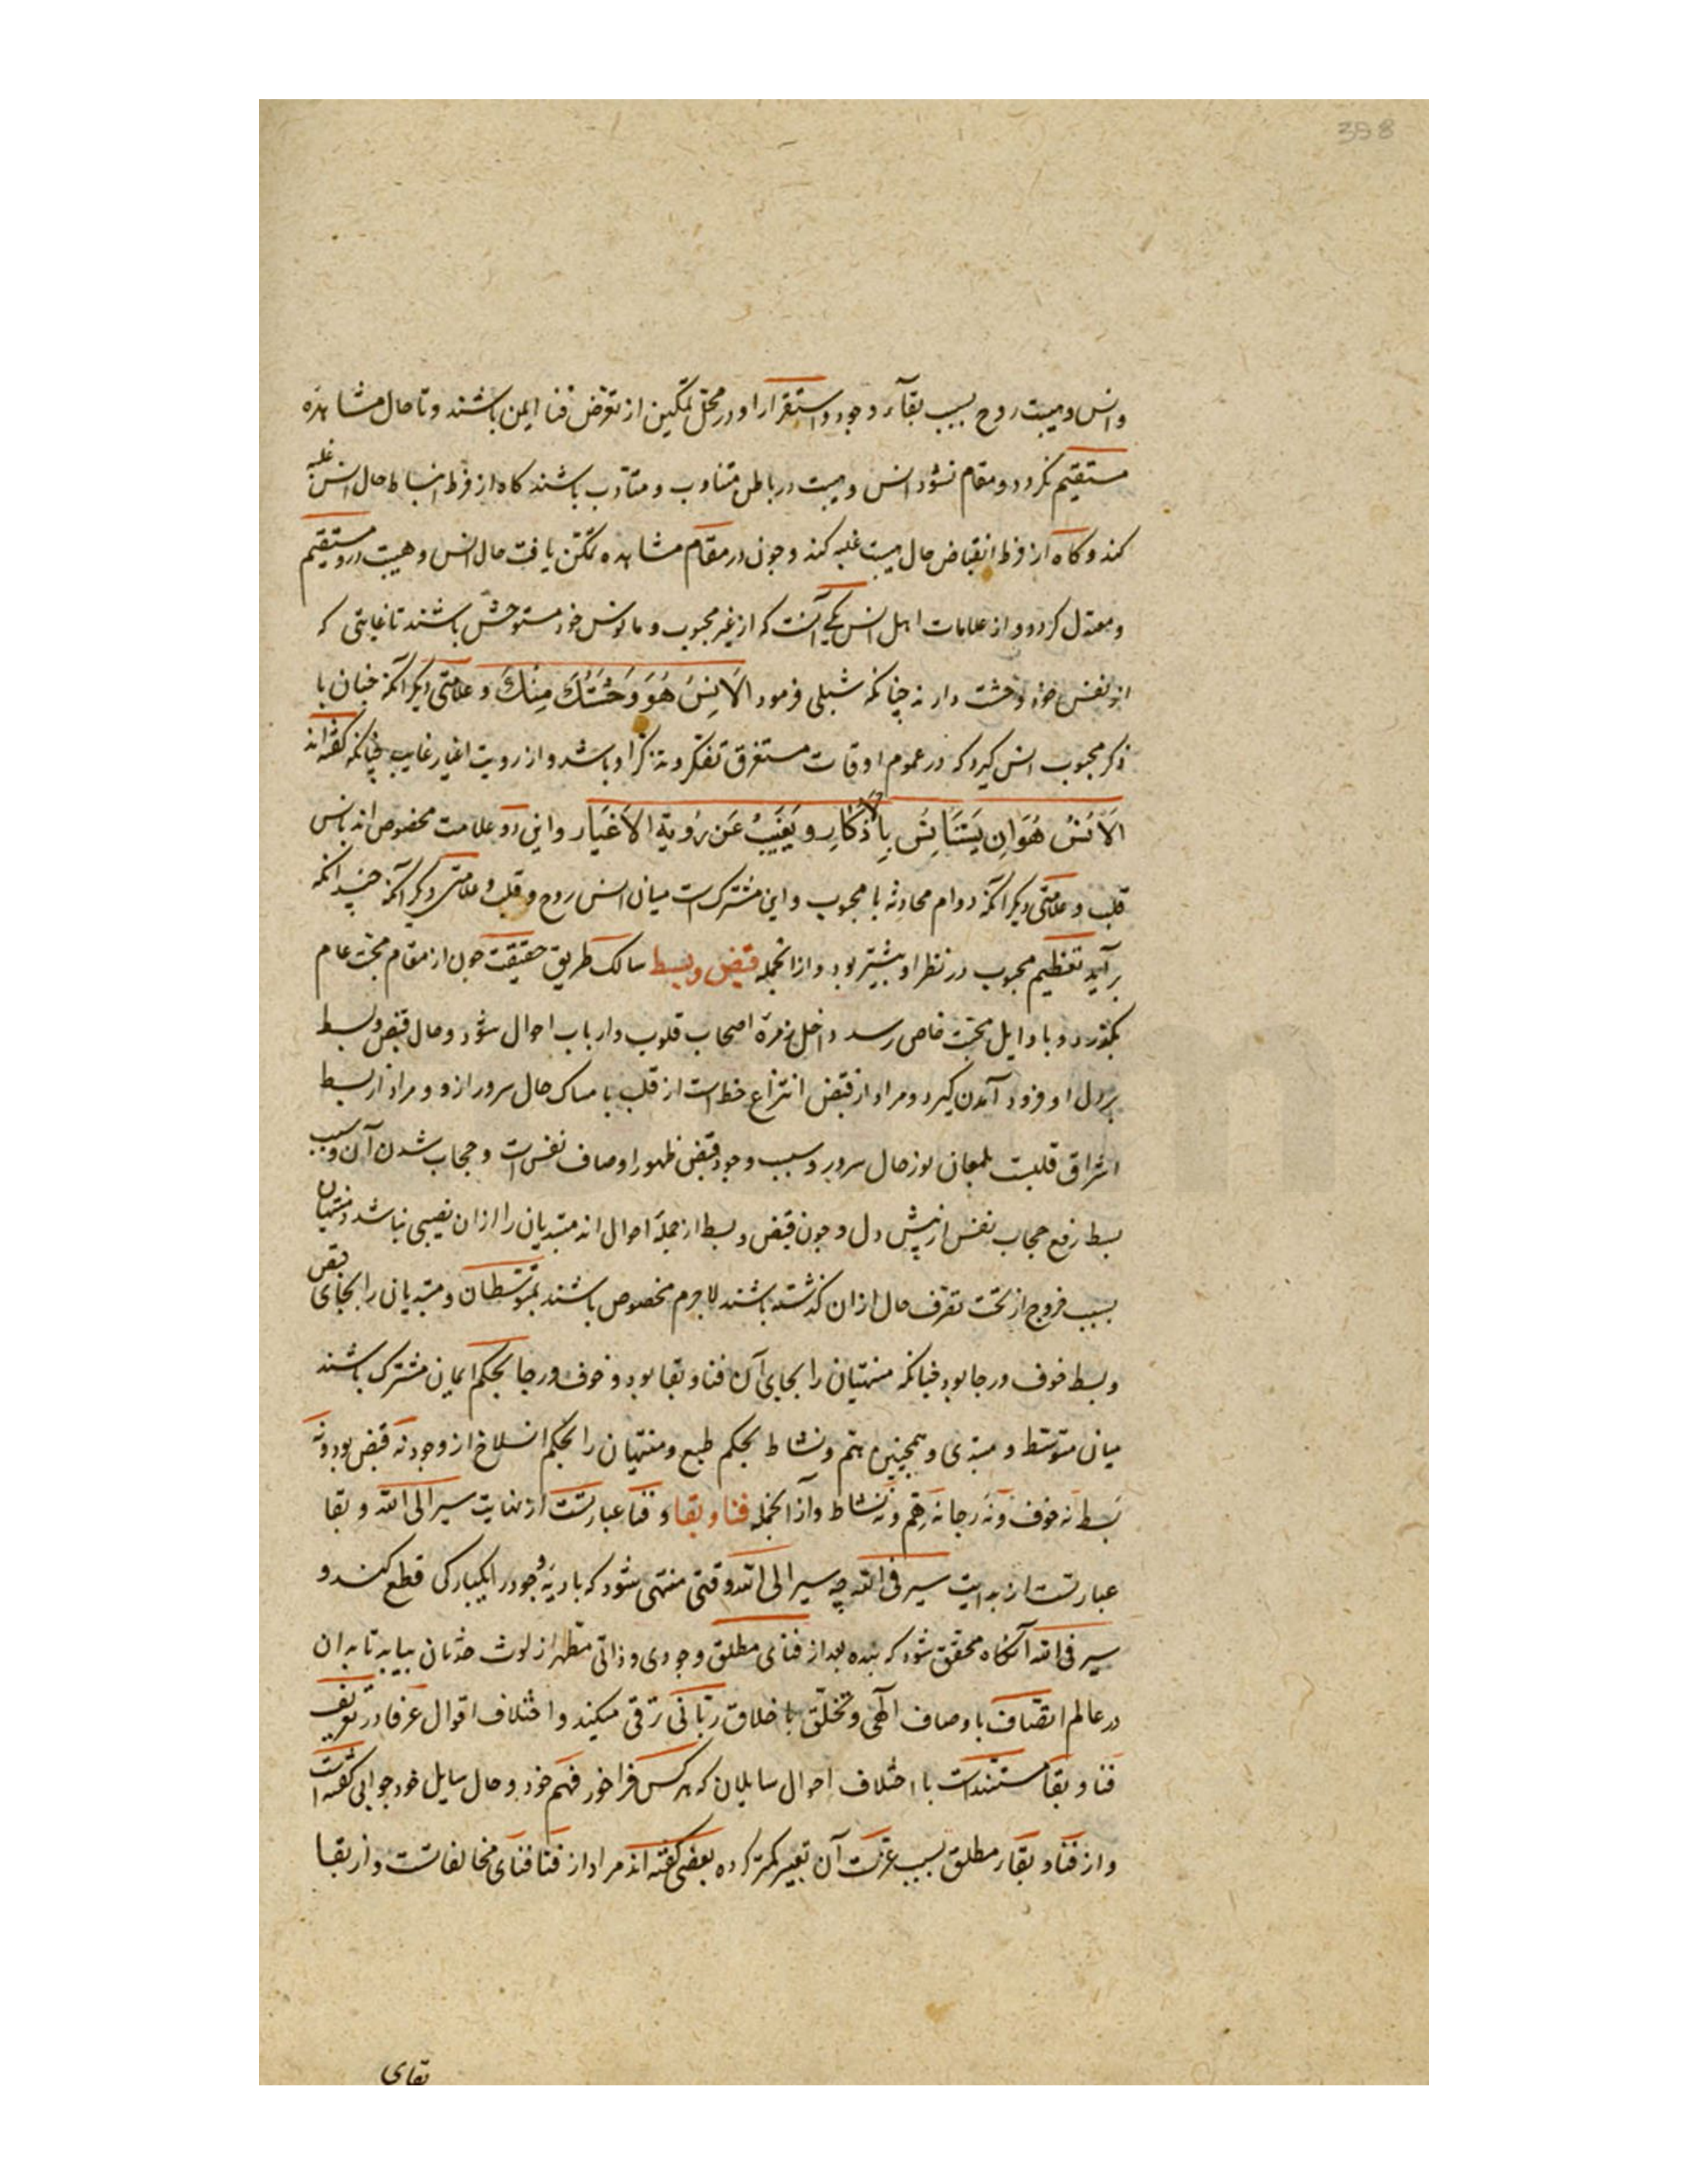 398
وانس و هیبت روح بسبب بقآء وجود و استقرار او در محل تمکین از تعرّض فنا ایمن باشند و تا حال مشاهده
مستقیم نکردد و مقام نشود انس و هیبت در باطن متناوب و متأدب باشند کاه از فرط انبساط حال انس غلبه
کند و کاه از فرط انقباض حال هیبت غلبه کند و چون در مقام مشاهده تمکن یافت حال انس و هیبت درو مستقیم
و معتدل کردد و از علامات اهل انس یکی آنست که از غیر محبوب و مانوس خود مستوحش باشند تا غایتی که
از نفس خود وحشت دارند چنانکه شبلی فرمود اَلاَنِسُ هُوَ وَحْشَتُكَ مِنكَ و علامتی دیکر آنکه چنان با
ذکر محبوب انس کیرد که در عموم اوقات مستغرق تفکر و تذکر او باشد و از رویت اغیار غایب چنانکه کفته اند
اَلاُنسُ هُوَ اِن یَسْتَانِسُ بِالاَذکَارِ و یَغِیبُ عَن رُویة الاَغیَار و این دو علامت مخصوص اند بانس
قلب و علامتی دیکر آنکه دوام محادثه با محبوب و این مشترک است میان انس روح و قلب و علامتی دیکر آنکه چندانکه
برآید تعظیم محبوب در نظر او بیشتر بود و از انجمله قبض و بسط سالک طریق حقیقت چون از مقام محبّت عام
بکذرد و باوایل محبّت خاص رسد داخل زمرهٔ اصحاب قلوب و ارباب احوال شود و حال قبض و بسط
بر دل او فرود آمدن کیرد و مراد از قبض انتزاع حظ است از قلب بامساک حال سرور ازو و مراد از بسط
اشراق قلبت بلمعان نور حال سرور و سبب وجود قبض ظهور اوصاف نفس است و حجاب شدن آن و سبب
بسط رفع حجاب نفس از پیش دل و چون قبض و بسط از جملهٔ احوال اند مبتدیان را از ان نصیبی نباشد و منتهیان
بسبب خروج از تحت تصرّف حال از ان کذشته باشند لاجرم مخصوص باشند بمتوسّطان و مبتدیان را بجای قبض
و بسط خوف و رجا بود چنانکه منتهیان را بجای آن فنا و بقا بود و خوف و رجا بحکم ایمان مشترک باشند
میان متوسّط و مبتدی و همچنین همّ و نشاط بحکم طبع و منتهیان را بحکم انسلاخ از وجود نه قبض بود و نه
بسط نه خوف و نه رجا نه همّ و نه نشاط و از انجمله فنا و بقا و فنا عبارتست از نهایت سیر الی الله و بقا
عبارتست از بدایت سیر فی الله چه سیر الی الله وقتی منتهی شود که بادیهٔ وجود را بیکبارکی قطع کند و
سیر فی الله آنکاه محقّق شود که بنده بعد از فنای مطلق وجودی و ذاتی مطهر از لوث حدثان بیابد تا بدان
در عالم اتّصاف باوصاف الهی و تخلّق باخلاق ربّانی ترقی میکند و اختلاف اقوال عرفا در تعریف
فنا و بقا مستندات با اختلاف احوال سایلان که هر کس فراخور فهم خود و حال سایل خود جوابی کفته است
و از فنا و بقاء مطلق بسبب عزّت آن تعبیر کمتر کرده بعضی کفته اند مراد از فنا فنای مخالفاتست و از بقا
بقای